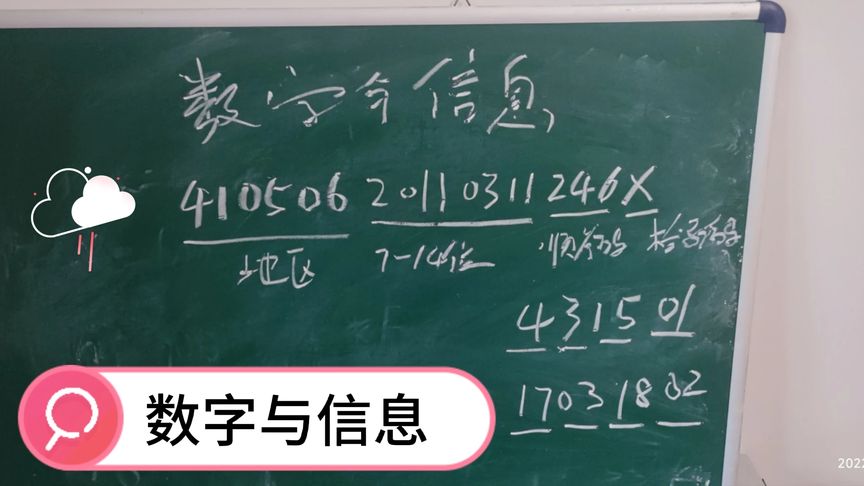 数字与信息
410506 20110311 246X
地区 7-14位 顺序码 检验码
431501
17031802
数字与信息
2022